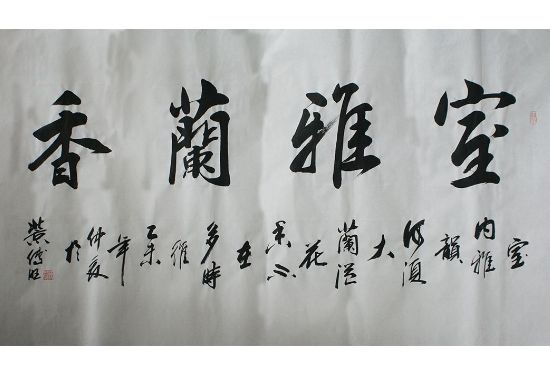 室雅蘭香
室
内雅
韻
何須
大
蘭溢
花
香不
在
多時
維
乙未
年
仲夏
於